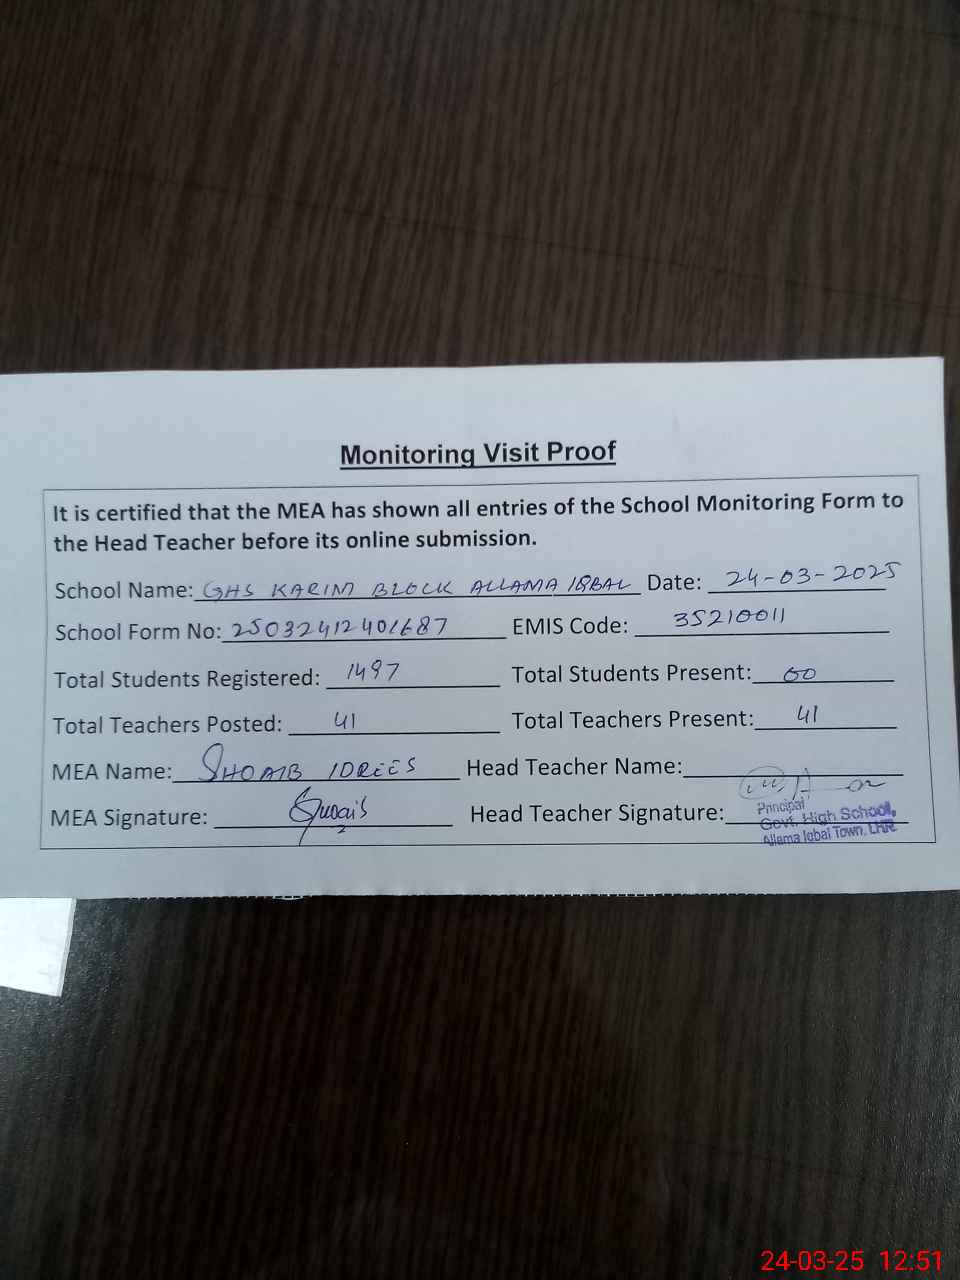 Monitoring Visit Proof
It is certified that the MEA has shown all entries of the School Monitoring Form to
the Head Teacher before its online submission.
School Name: GHS KARIM BLOCK ALLAMA IQBAL Date: 24-03-2025
School Form No: 25032412401687 EMIS Code: 35210011
Total Students Registered: 1497 Total Students Present: 60
Total Teachers Posted: 41 Total Teachers Present: 41
MEA Name: SHOAIB IDREES Head Teacher Name:
MEA Signature: Head Teacher Signature:
Principal
Govt. High School,
Allama Iqbal Town, LHR
24-03-25 12:51